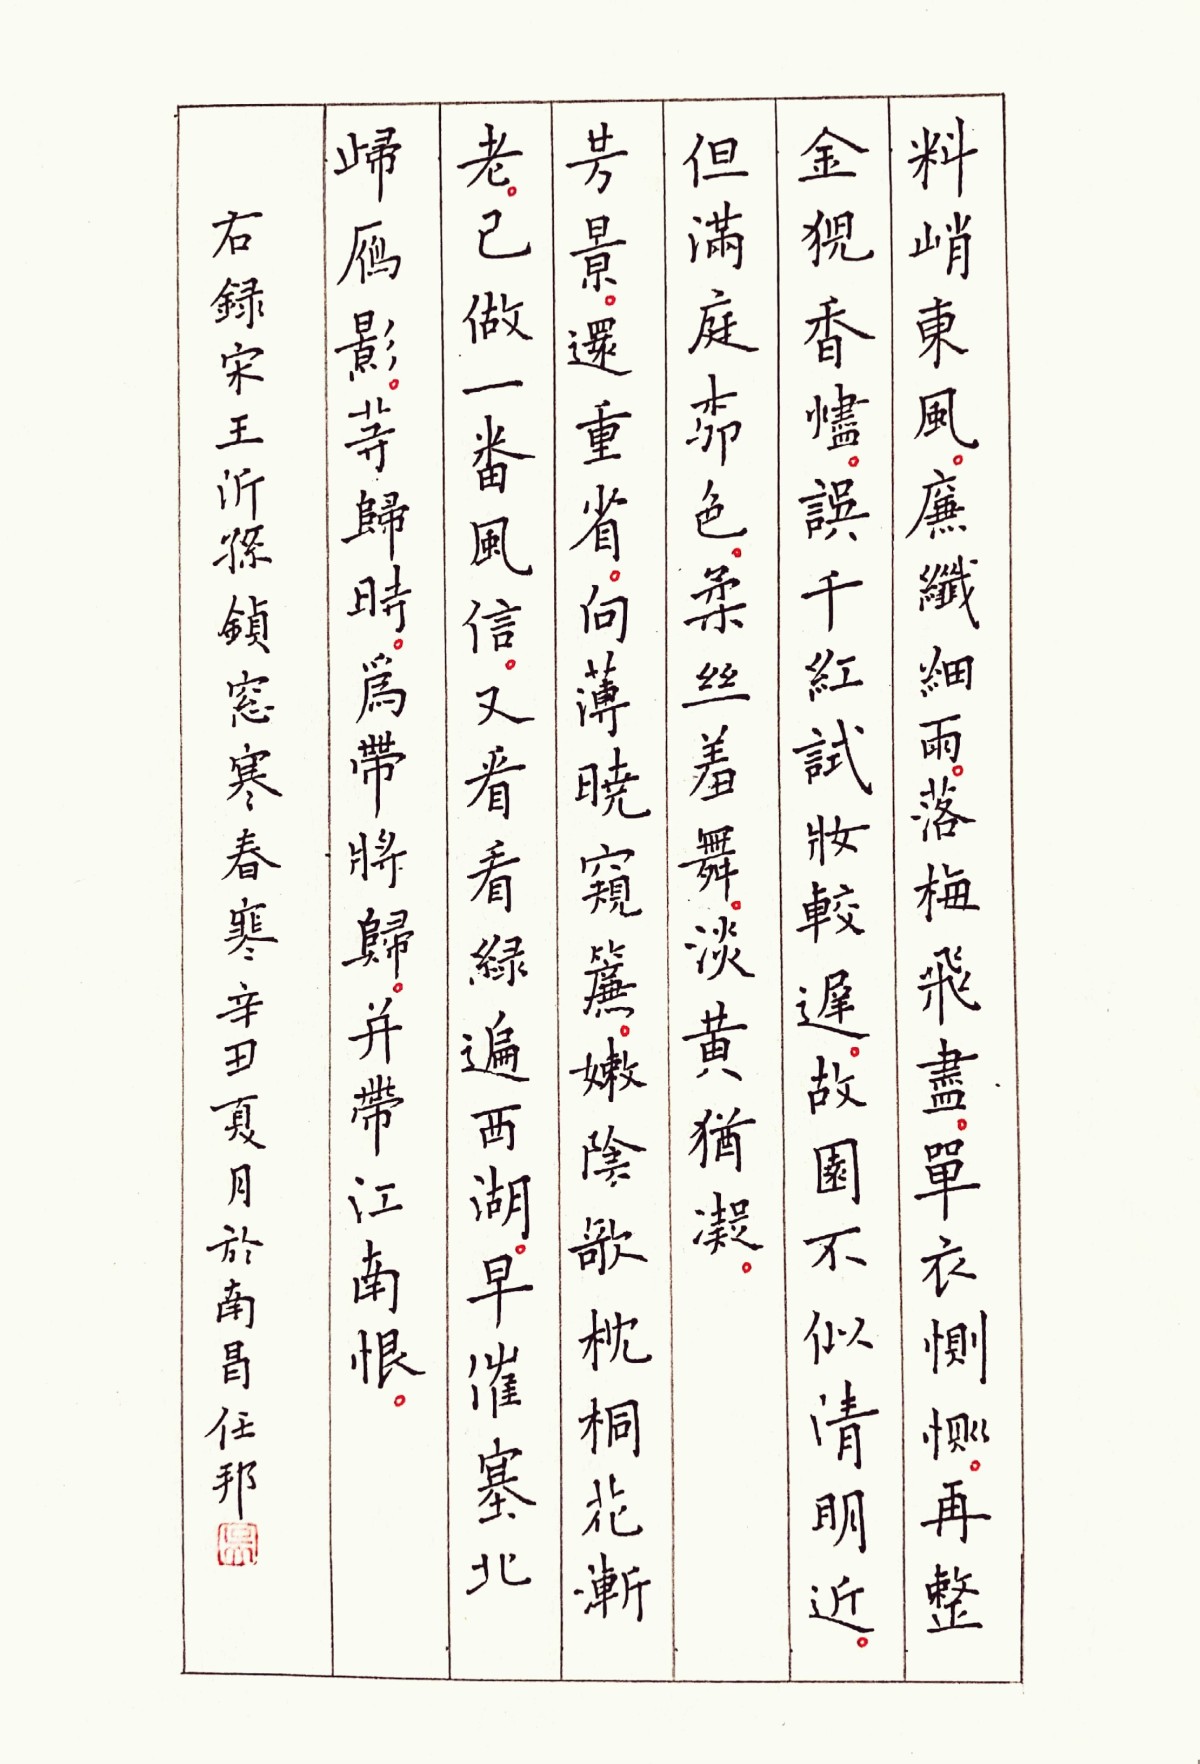 料峭東風。廉纖細雨。落梅飛盡。單衣惻惻。再整
金猊香燼。誤千紅試妝較遲。故園不似清明近。
但滿庭柳色。柔丝羞舞。淡黄猶凝。
芳景。還重省。向薄曉窺簾。嫩陰欹枕桐花漸
老。已做一番風信。又看看緑遍西湖。早催塞北
歸雁影。等歸時。為帶將歸。并帶江南恨。
右録宋王沂孫鎖窓寒春寒辛丑夏月於南昌任邦